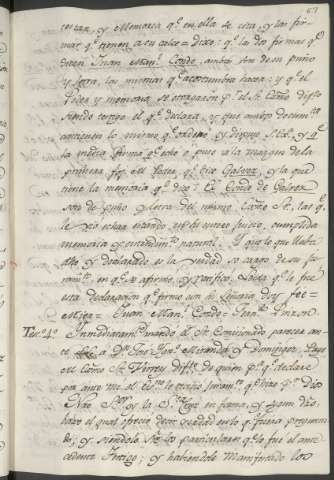 67
cerrar, y Memoria q.e en ella se cita, y las fir-
mas q.e tienen a su calce = Dixo: q.e las dos firmas q.e
dicen Juan Man.l Conde, ambas son de su puño
y letra, las mismas q.e acostumbra hacer; y q.e el
Poder y memoria se otorgaron p.r el S.r Exmo dif.to
siendo testigo el q.e declara, y que ambos docum.tos
contienen lo mismo q.e ordenó y dispuso S.Ex.a y q.e
la media firma q.e echó o puso a la margen de la
primera foja del Poder, q.e dice Galvez, y la que
tiene la memoria q.e dice: El Conde de Galvez
son de puño y letra del mismo Exmo S.r las q.e
le vio echar estando en su entero juicio, cumplida
memoria y entendim.to natural. Y que lo que lleba
dho y declarado es la verdad so cargo de su ju-
ram.to en q.e se afirmó, y ratificó. Leida q.e le fue
esta declaracion q.e firmó con su Señoria doy fee =
Mier = Juan Man.l Conde = Juan Ant.o
Tes.o 4.o Inmediatam.te mandó el S.r Comisionado parezca an-
te a D.n Jose Fran.co Miranda y Dominguez, Page
del Exmo S.r Virrey dif.to de quien p.a q.e declare
por ante mi el Es.no le recivió juram.to q.e hizo p.r Dios
Nro S.or y la S.ta Cruz en forma, y segun dro,
baxo el qual ofreció decir verdad en lo q.e fuera pregunta-
do; y siendole S.e los particulares q.e lo fue el ante
cedente Testigo; y habiendole manifestado los